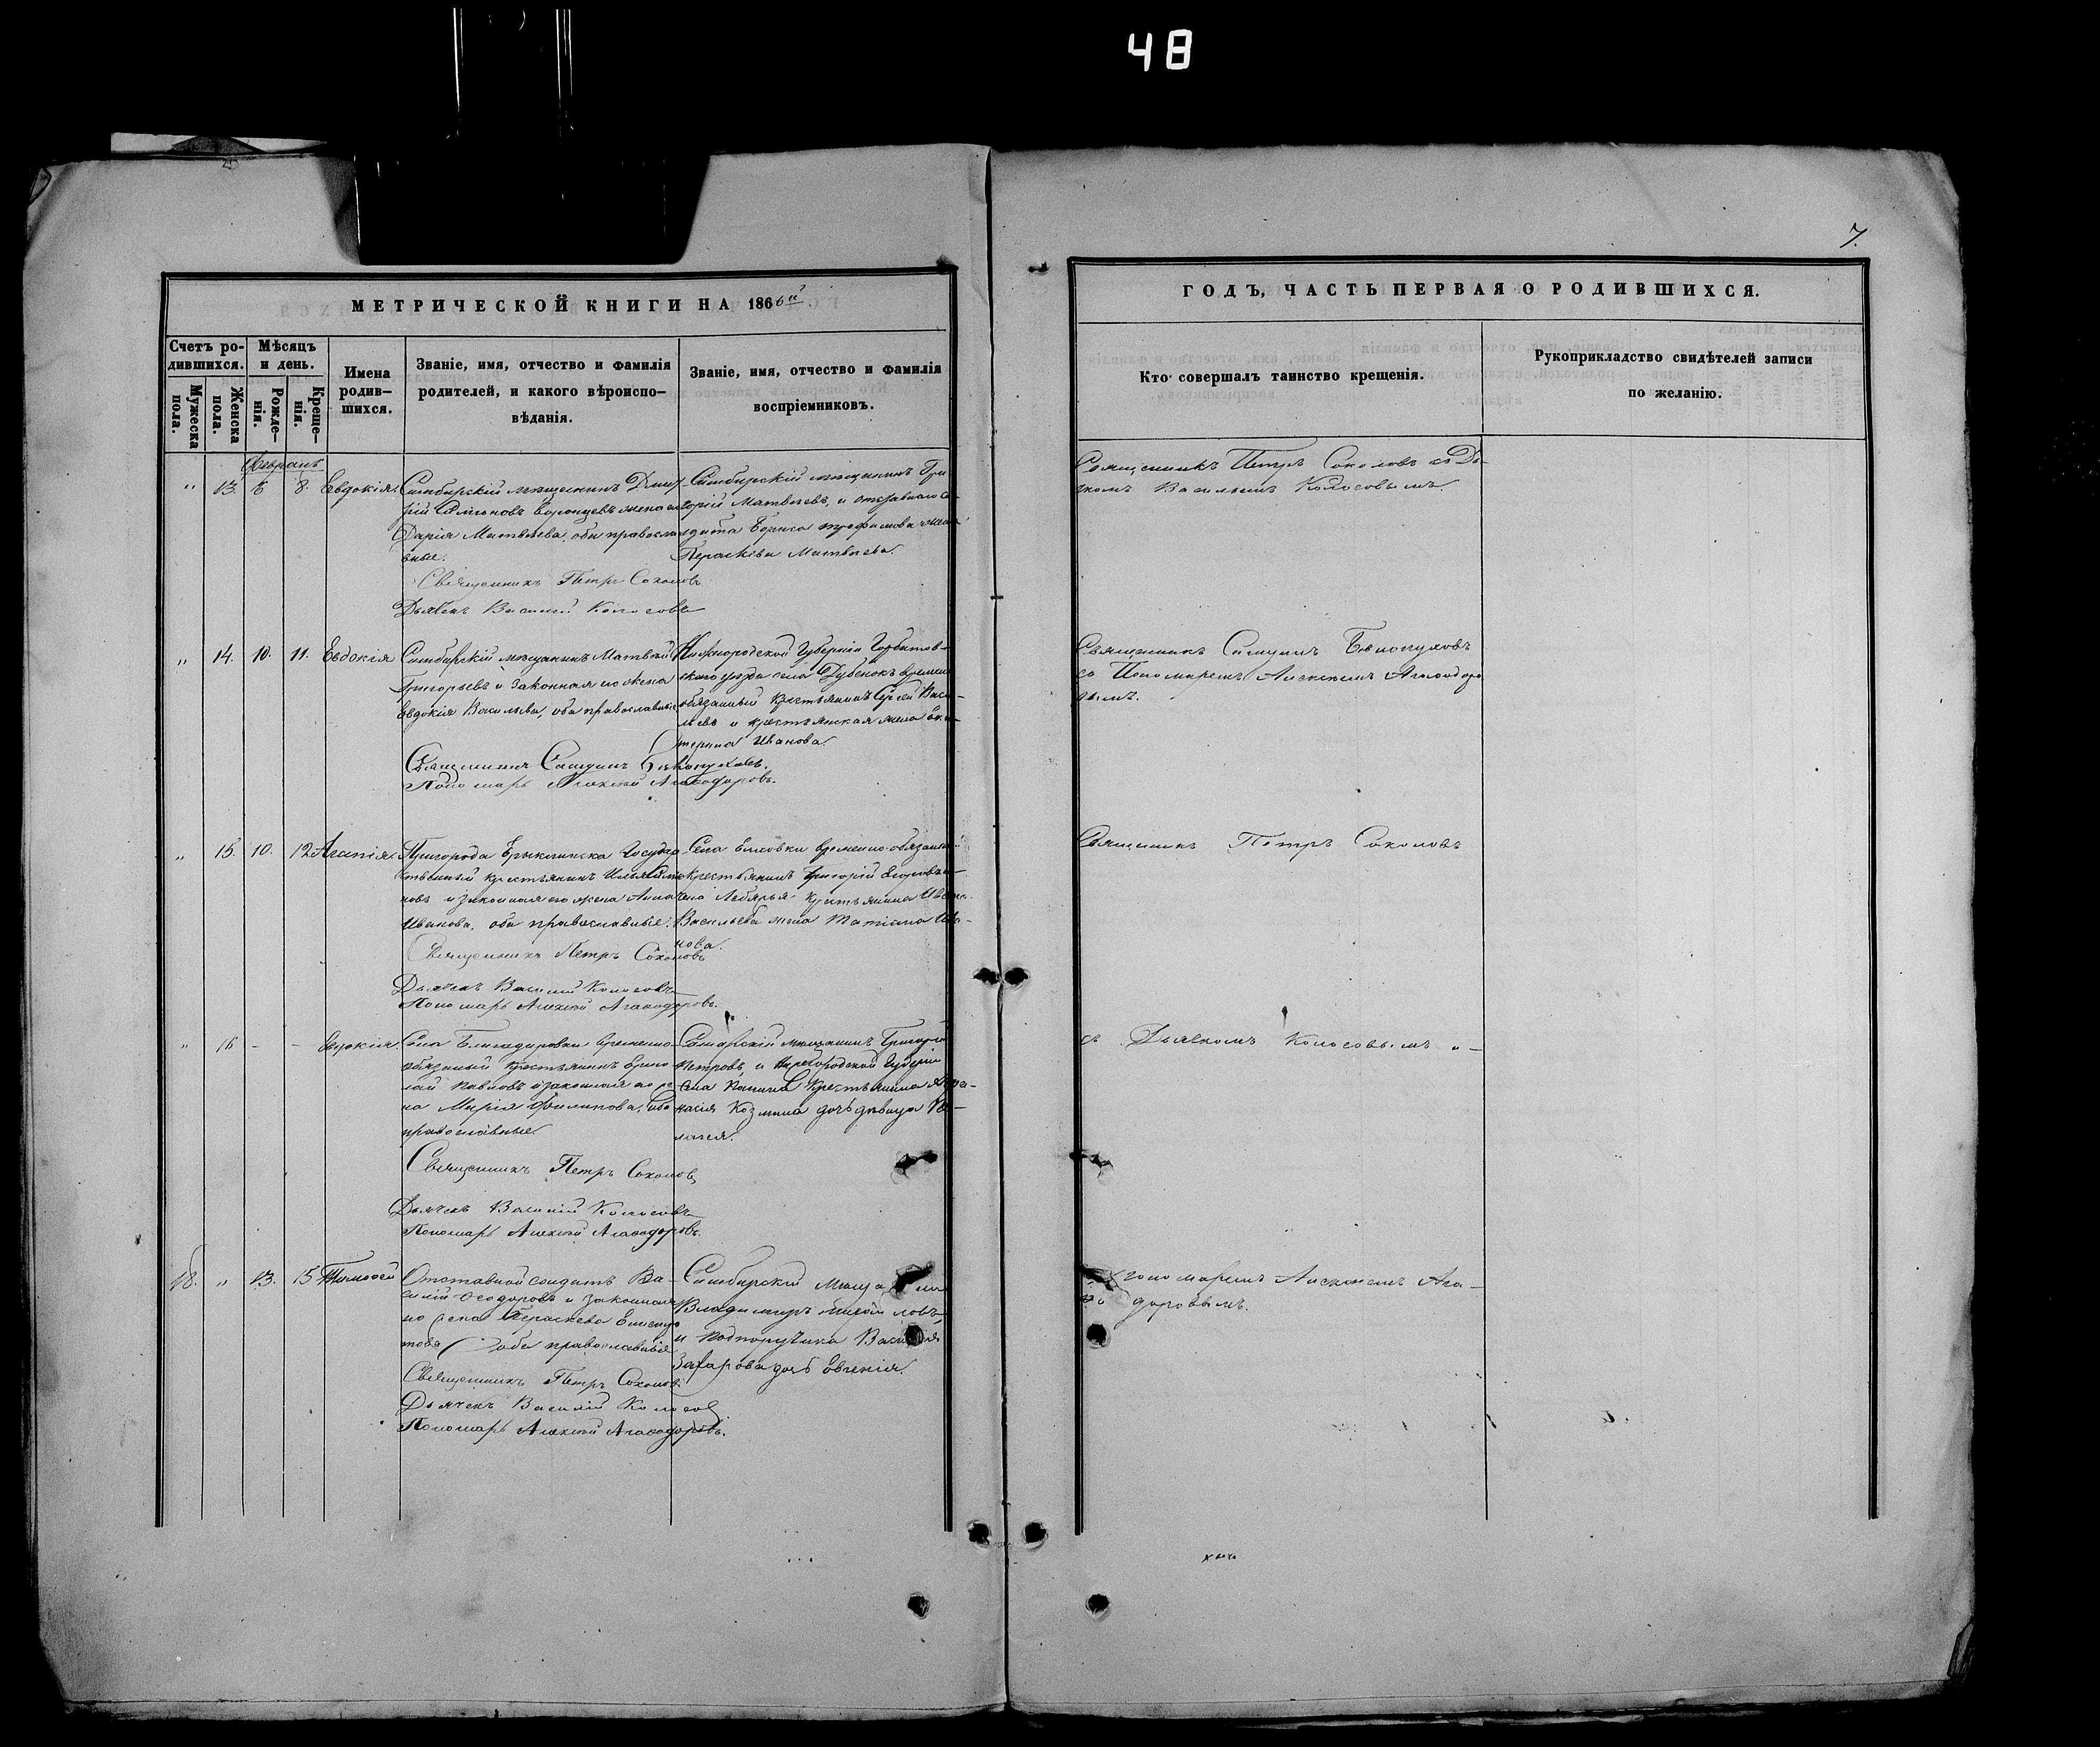 48
7.
МЕТРИЧЕСКОЙ КНИГИ НА 1866й
Счетъ ро-
дившихся.
Мужеска
пола.
Женска
пола.
Мѣсяцъ
и день.
Рожде-
нія.
Креще-
нія.
Имена
родив-
шихся.
Званіе, имя, отчество и фамилія
родителей, и какого вѣроиспо-
вѣданія.
Званіе, имя, отчество и фамилія
воспріемниковъ.
ГОДЪ, ЧАСТЬ ПЕРВАЯ О РОДИВШИХСЯ.
Кто совершалъ таинство крещенія.
Рукоприкладство свидѣтелей записи
по желанію.
Февраль
" 13. 8. Евдокія.
Симбирскій мѣщанинъ
жена его
Дарія Матвѣева, оба правосла
вные.
Священникъ Петръ Соколовъ
Дьячекъ Василій Колосовъ
Симбирскій мѣщанинъ Гри
горій Матвѣевъ, и отставнаго со
лдата жена
Параскева Матвѣева.
Священникъ Петръ Соколовъ съ Дь
Василіемъ Колосовымъ.
" 14. 10. 11. Евдокія
Симбирскій мѣщанинъ Матвѣй
Григорьевъ и законная его жена
Евдокія Васильева, оба православные
Священникъ
Пономарь Алексѣй Агаѳодоровъ.
Нижегородской Губерніи Горбатов-
скаго уѣзда села Дубенокъ времен
обязанный крестьянинъ Сергѣй Васи-
льевъ и крестьянская жена Ека-
терина Иванова.
Священникъ
съ Пономаремъ Алексѣемъ Агаѳодоро
вымъ.
" 15. 10. 12 Агапія.
Пригорода Ерыклинска Государ
ственный крестьянинъ
и законная его жена Анна
Иванова, оба православные.
Священникъ Петръ Соколовъ
Дьячекъ Василій Колосовъ
Пономарь Алексѣй Агаѳодоровъ.
Села временно-обязанный
крестьянинъ Григорій Егоровъ и
села крестьянина Ивана
Васильева жена Татіана Ива-
нова.
Священникъ Петръ Соколовъ
" 16 - - Евдокія.
Села временно-
обязанный крестьянинъ
Павловъ и законная его же
на Марія Филипова, оба
православные.
Священникъ Петръ Соколовъ
Дьячекъ Василій Колосовъ
Пономарь Алексѣй Агаѳодоровъ.
Самарскій мѣщанинъ Григорій
Петровъ, и Нижегородской Губерніи
села крестьянина Аѳа-
насія Козмина дочь дѣвица Пе-
лагея.
съ Дьячкомъ Колосовымъ "-
18. " 13. 15 Тимоѳей
Отставной солдатъ Ва-
силій Ѳеодоровъ и законная
его жена Параскева
това оба православные
Священникъ Петръ Соколовъ
Дьячекъ Василій Колосовъ
Пономарь Алексѣй Агаѳодоровъ.
Симбирскій
Владимиръ Михайловъ,
и подпоручика Василія
Захарова дочь Евгенія.
Пономаремъ Алексѣемъ Ага-
доровымъ.